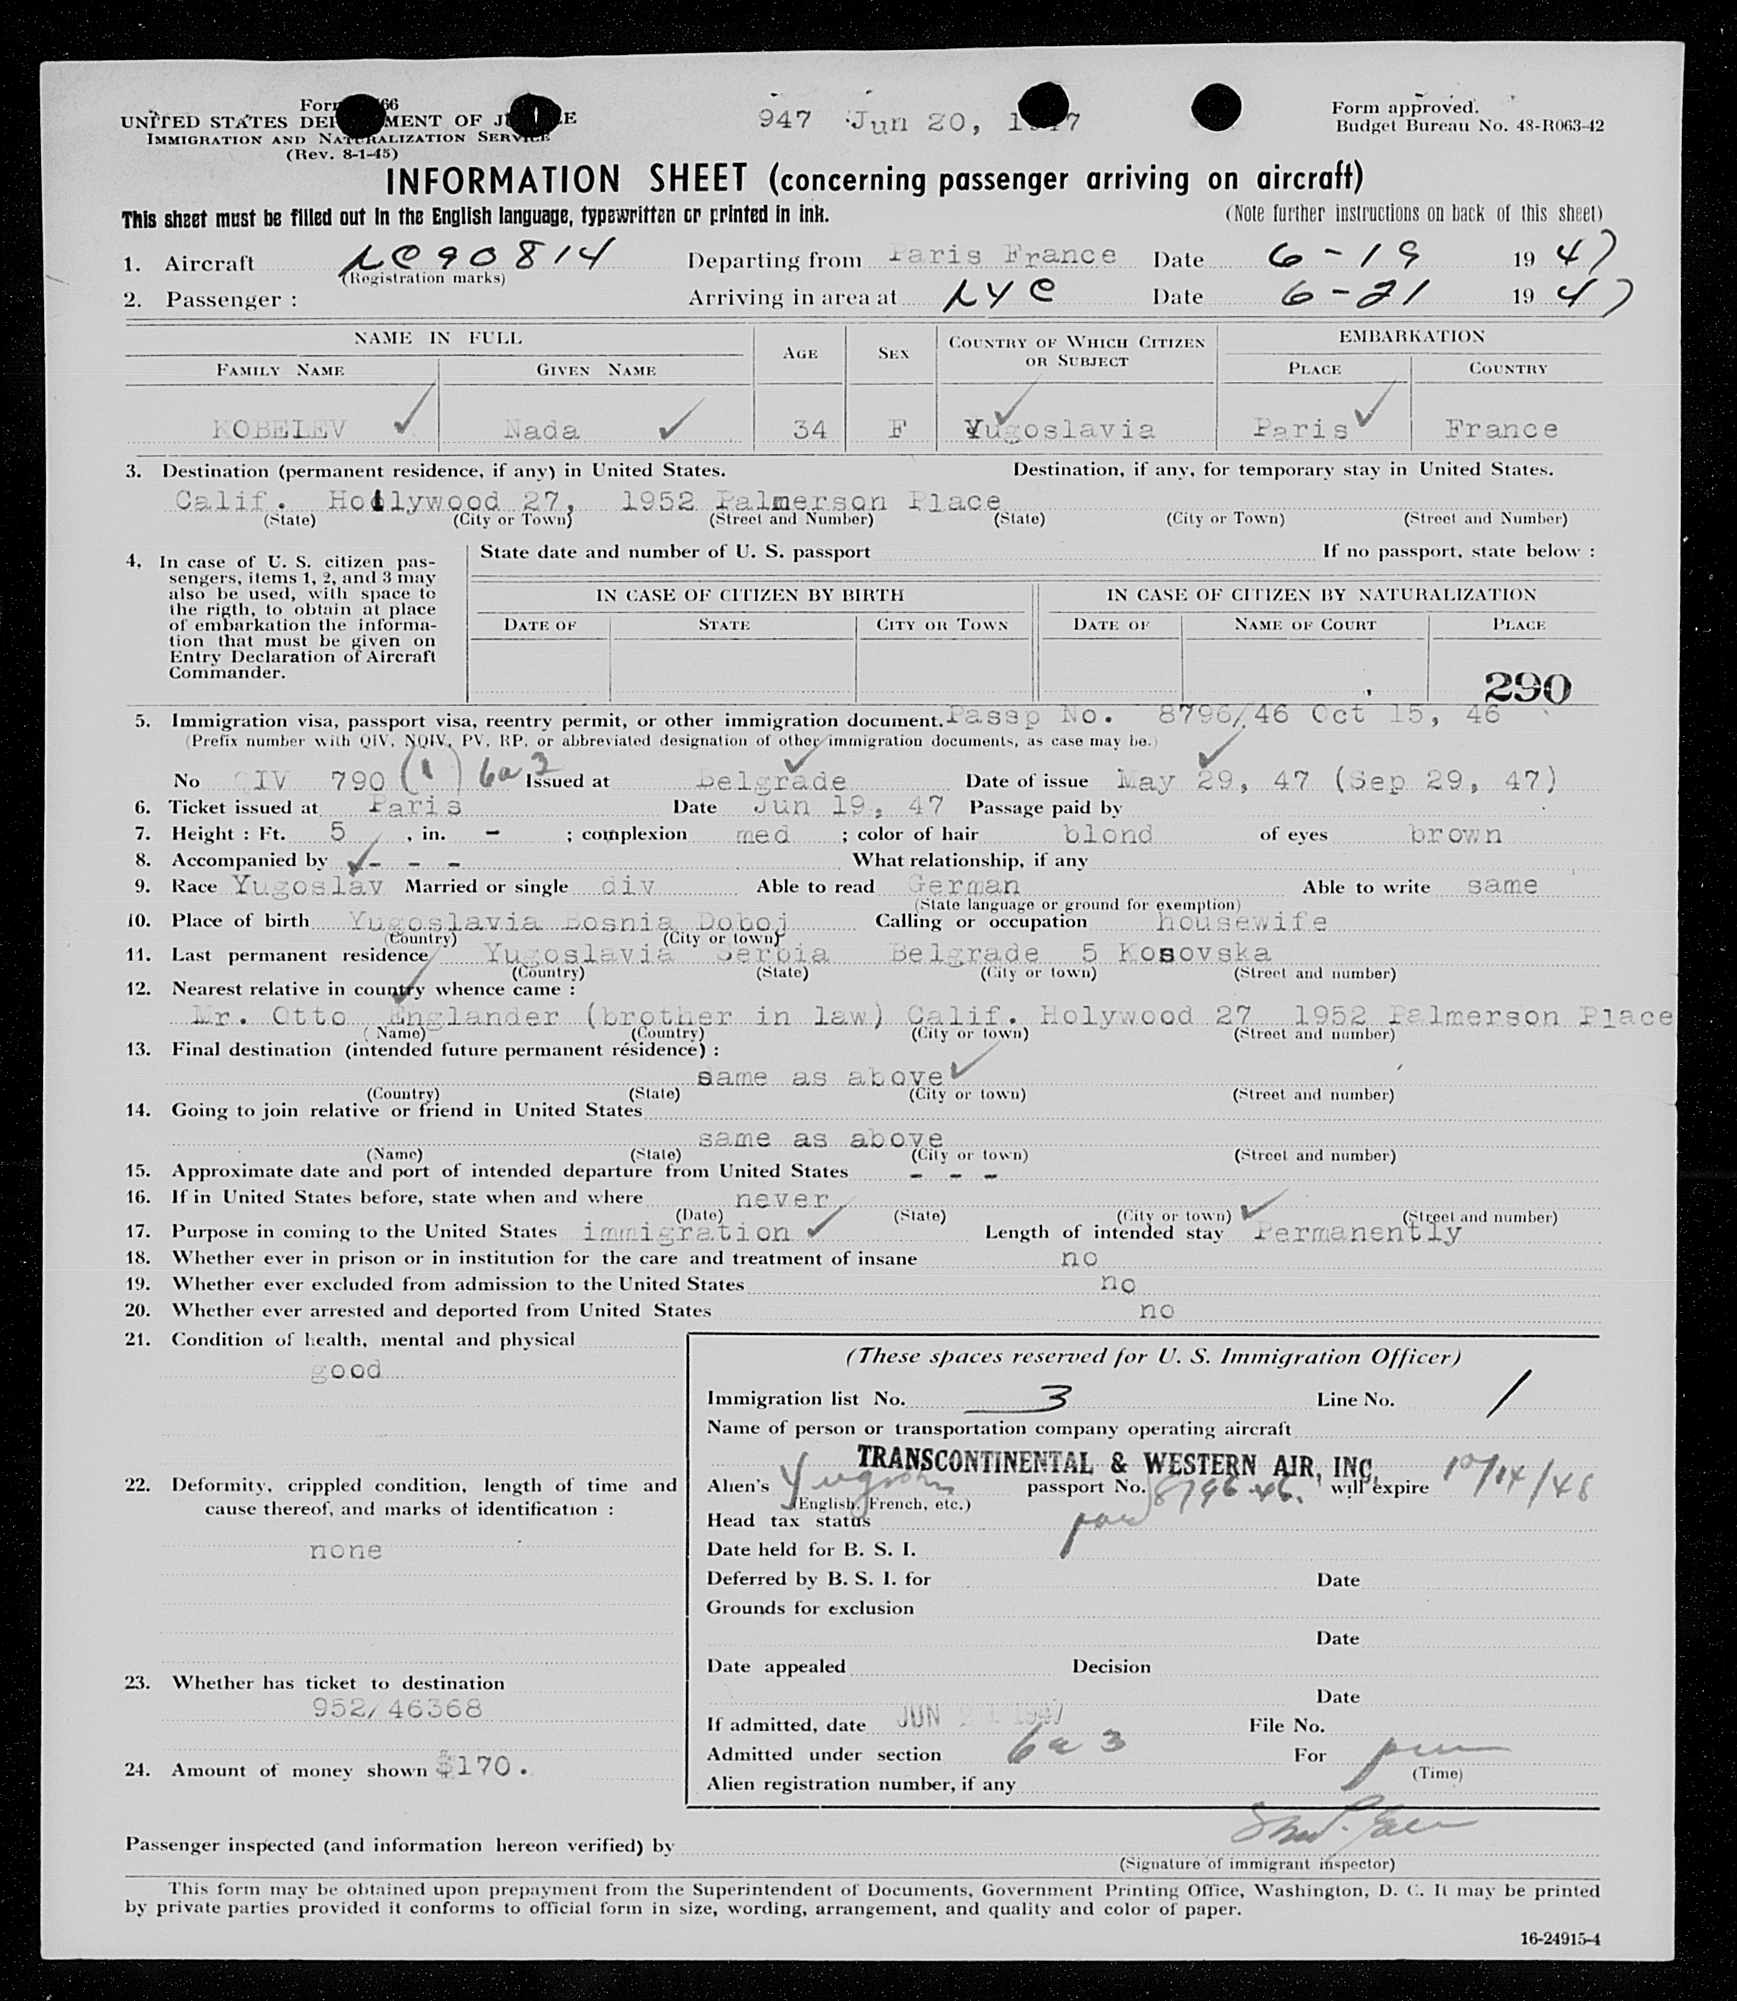 UNITED STATES DEPARTMENT OF JUSTICE
IMMIGRATION AND NATURALIZATION SERVICE
(Rev. 8-1-45)
947 Jun 20, 1947
Form approved.
Budget Bureau No. 43-R063-42
INFORMATION SHEET (concerning passenger arriving on aircraft)
This sheet must be filled out in the English language, typewritten or printed in ink. (Note further instructions on back of this sheet)
1. Aircraft NC90814 Departing from Paris France Date 6-19 1947
(Registration marks)
2. Passenger : Arriving in area at NYC Date 6-21 1947
NAME IN FULL AGE SEX COUNTRY OF WHICH CITIZEN OR SUBJECT EMBARKATION
FAMILY NAME GIVEN NAME PLACE COUNTRY
KOBELEV Nada 34 F Yugoslavia Paris France
3. Destination (permanent residence, if any) in United States. Destination, if any, for temporary stay in United States.
Calif. Hollywood 27, 1952 Palmerson Place
(State) (City or Town) (Street and Number) (State) (City or Town) (Street and Number)
4. In case of U. S. citizen pas-
sengers, items 1, 2, and 3 may
also be used, with space to
the rigth, to obtain at place
of embarkation the informa-
tion that must be given on
Entry Declaration of Aircraft
Commander.
State date and number of U. S. passport If no passport, state below :
IN CASE OF CITIZEN BY BIRTH IN CASE OF CITIZEN BY NATURALIZATION
DATE OF STATE CITY OR TOWN DATE OF NAME OF COURT PLACE
290
5. Immigration visa, passport visa, reentry permit, or other immigration document. Passp No. 8796/46 Oct 15, 46
(Prefix number with QIV, NQIV, PV, RP, or abbreviated designation of other immigration documents, as case may be.)
No QIV 790 (1) 6a3 Issued at Belgrade Date of issue May 29, 47 (Sep 29, 47)
6. Ticket issued at Paris Date Jun 19, 47 Passage paid by
7. Height : Ft. 5 , in. - ; complexion med ; color of hair blond of eyes brown
8. Accompanied by - - - What relationship, if any
9. Race Yugoslav Married or single div Able to read German Able to write same
(State language or ground for exemption)
10. Place of birth Yugoslavia Bosnia Doboj Calling or occupation housewife
(Country) (City or town)
11. Last permanent residence Yugoslavia Serbia Belgrade 5 Kosovska
(Country) (State) (City or town) (Street and number)
12. Nearest relative in country whence came :
Mr. Otto Englander (brother in law) Calif. Holywood 27 1952 Palmerson Place
(Name) (Country) (City or town) (Street and number)
13. Final destination (intended future permanent résidence) :
same as above
(Country) (State) (City or town) (Street and number)
14. Going to join relative or friend in United States
same as above
(Name) (State) (City or town) (Street and number)
15. Approximate date and port of intended departure from United States - - -
16. If in United States before, state when and where never
(Date) (State) (City or town) (Street and number)
17. Purpose in coming to the United States immigration Length of intended stay Permanently
18. Whether ever in prison or in institution for the care and treatment of insane no
19. Whether ever excluded from admission to the United States no
20. Whether ever arrested and deported from United States no
21. Condition of health, mental and physical
good
22. Deformity, crippled condition, length of time and
cause thereof, and marks of identification :
none
23. Whether has ticket to destination
952/46368
24. Amount of money shown $170.
(These spaces reserved for U. S. Immigration Officer)
Immigration list No. 3 Line No. 1
Name of person or transportation company operating aircraft
TRANSCONTINENTAL & WESTERN AIR, INC.
Alien's Yugoslav passport No. 8796-46. will expire 10/14/48
(English, French, etc.)
Head tax status
Date held for B. S. I.
Deferred by B. S. I. for Date
Grounds for exclusion
Date
Date appealed Decision
Date
If admitted, date JUN 21 1947 File No.
Admitted under section 6a3 For
(Time)
Alien registration number, if any
Passenger inspected (and information hereon verified) by
(Signature of immigrant inspector)
This form may be obtained upon prepayment from the Superintendent of Documents, Government Printing Office, Washington, D. C. It may be printed
by private parties provided it conforms to official form in size, wording, arrangement, and quality and color of paper.
16-24915-4